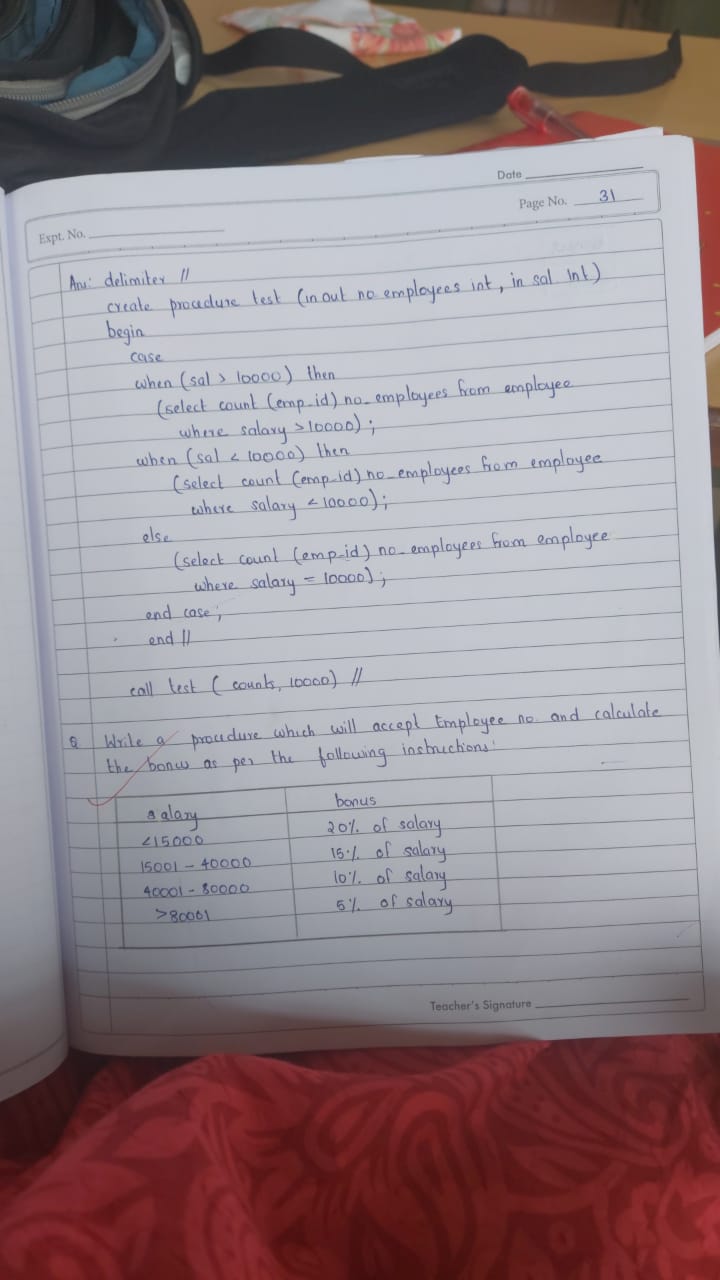 Date
Page No. 31
Expt. No.
Ans: delimiter //
create procedure test (inout no employees int, in sal int)
begin
case
when (sal > 10000) then
(select count (emp_id) no_employees from employee
where salary >10000);
when (sal < 10000) then
(select count (emp_id) no_employees from employee
where salary <10000);
else
(select count (emp_id) no_employees from employee
where salary = 10000);
end case;
end //
call test ( counts, 10000) //
Q Write a procedure which will accept Employee no. and calculate
the bonus as per the following instructions:
salary bonus
<15000 20% of salary
15001 - 40000 15% of salary
40001 - 80000 10% of salary
>80001 5% of salary
Teacher's Signature